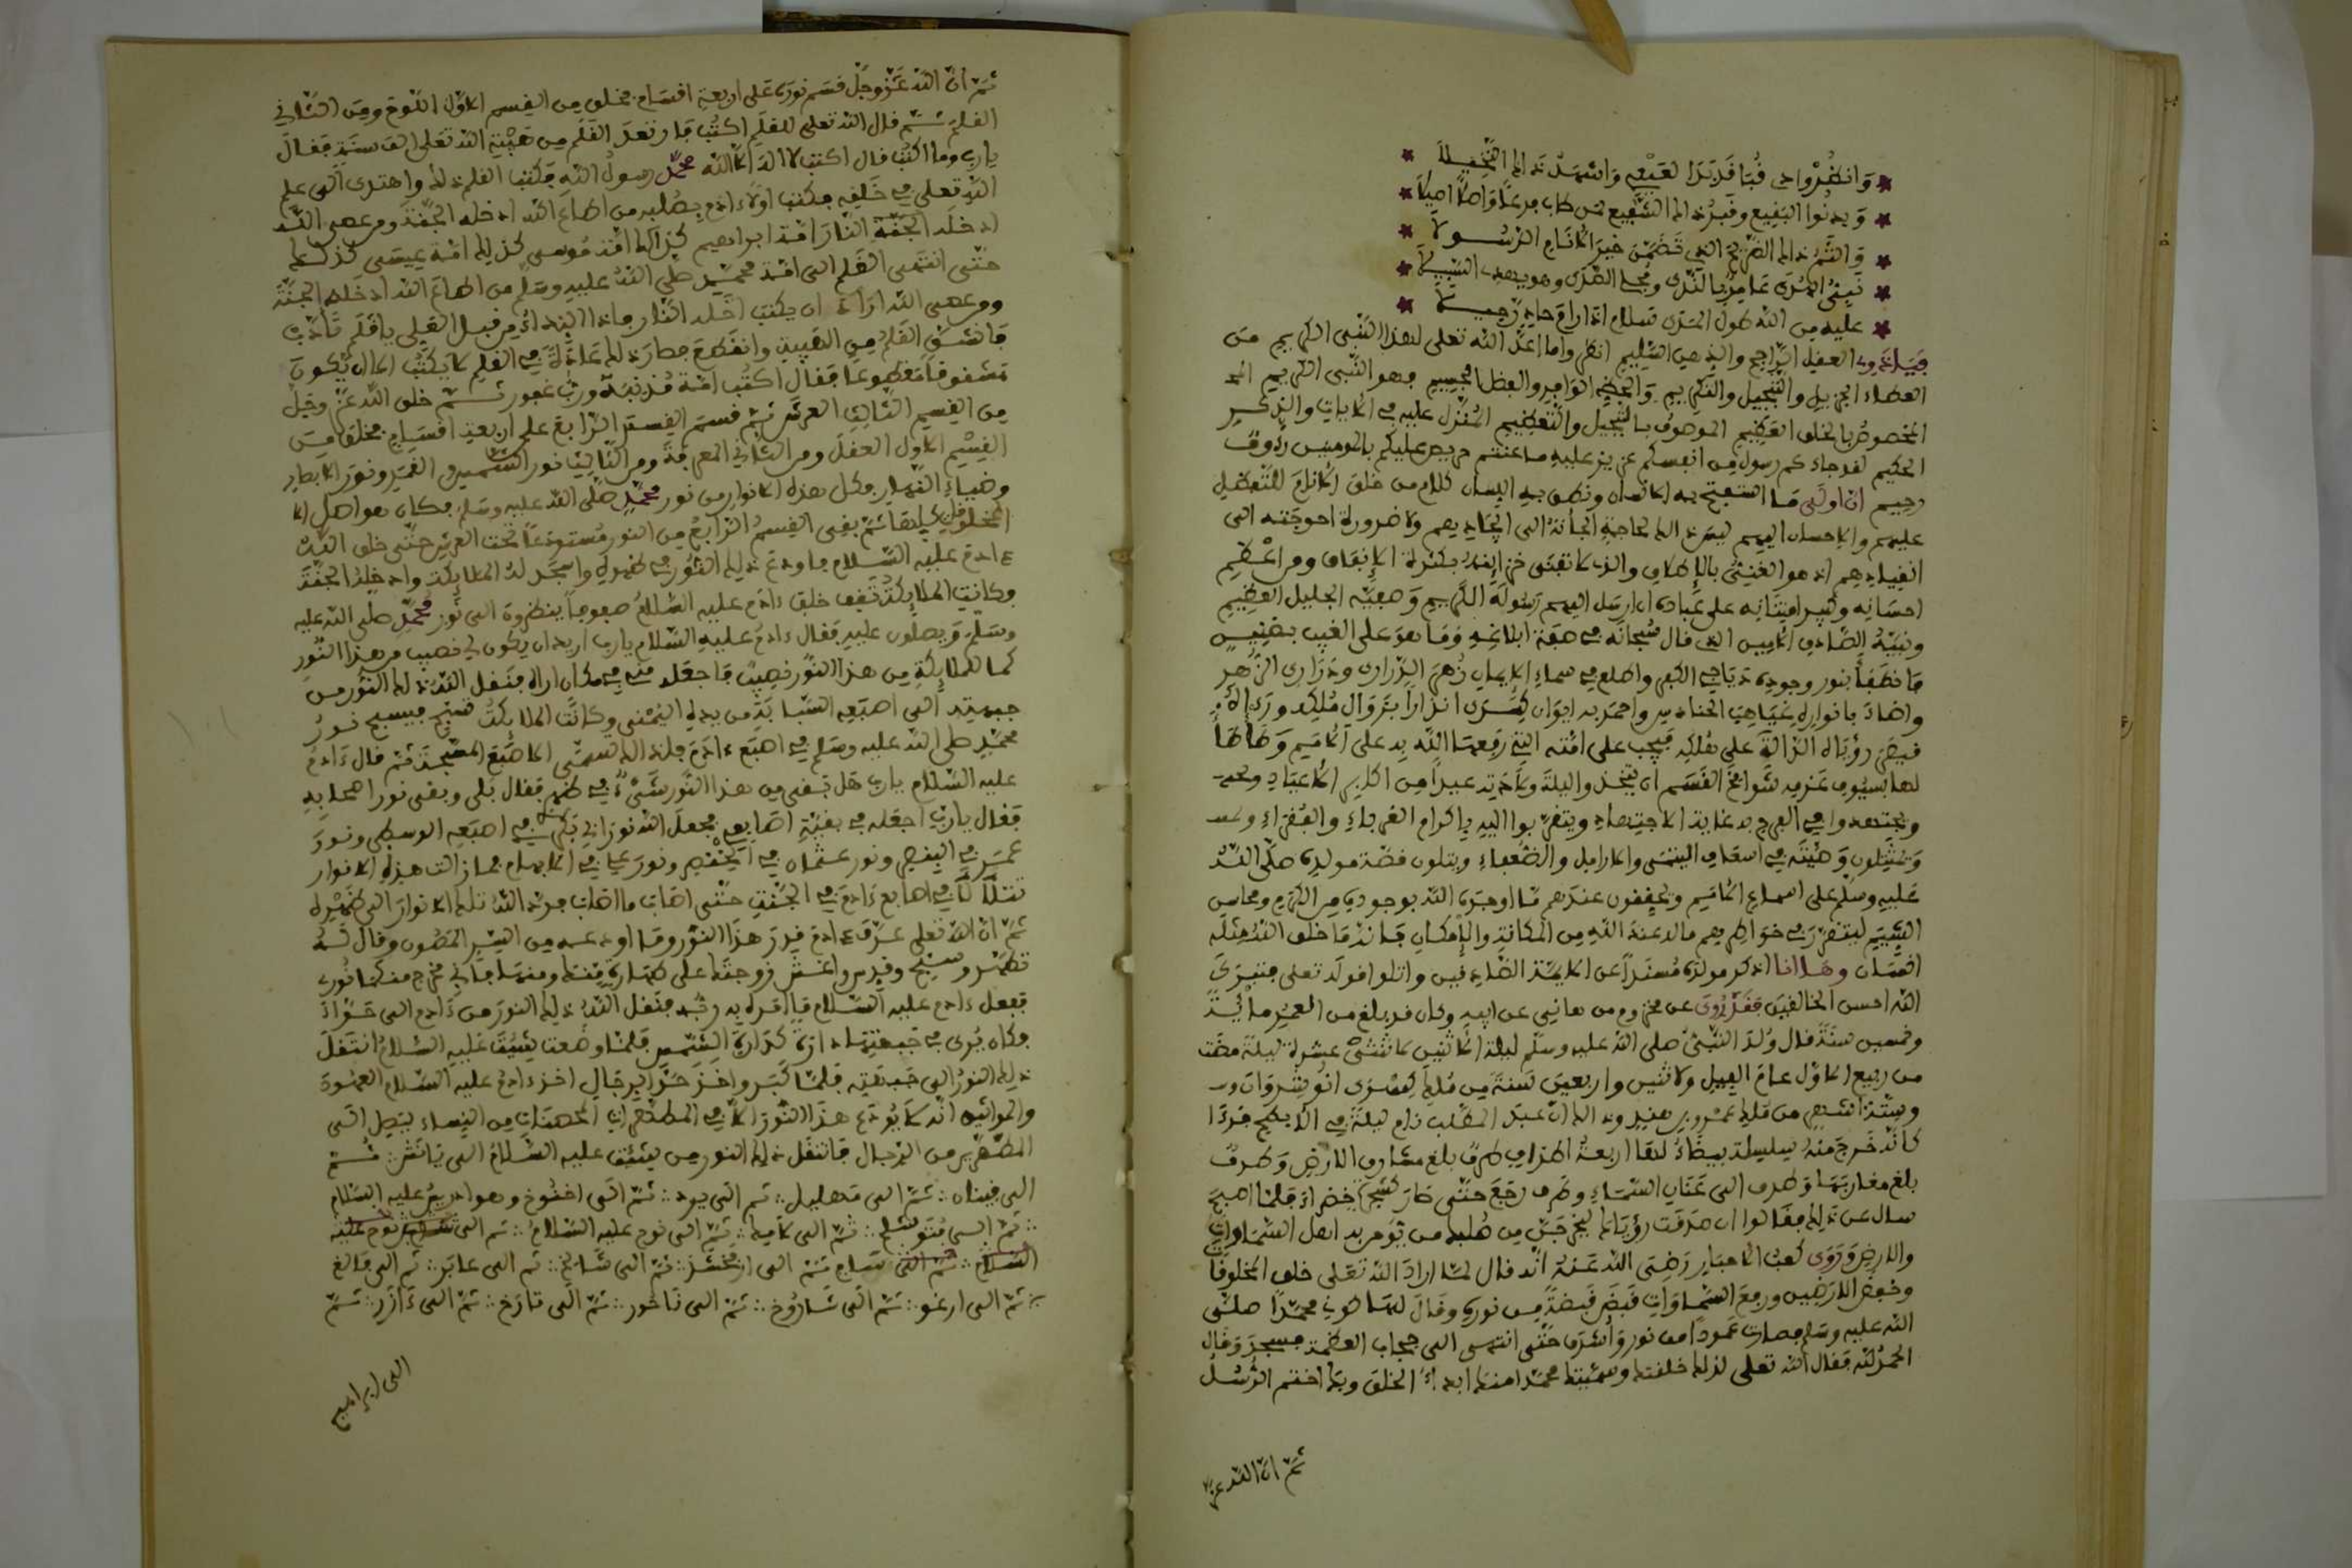 وانظروا من قبا قد بدا لعيني واشهد ذاك النخيلا
ويدنوا البقيع وقبر ذاك الشفيع من طاب فرعا واصلا اصيلا
والثم ذاك الضريح الذي تضمن خير الانام الرسولا
نبي الهدى غامر بالندى ومحيا الهدى وهو يهدي السبيلا
عليه من الله طول المدى سلام اذا راق حاد رحيلا
فيا ذوي العقل الراجح والذهن السليم انظروا ما اعد الله تعلى لهذا النبي الكريم من
العطاء الجزيل والتبجيل والتكريم والحظ الوافر والفضل الجسيم فهو النبي الكريم
المخصوص بالخلق العظيم الموصوف بالتبجيل والتعظيم المنزل عليه في الايات والذكر
الحكيم لقد جاءكم رسول من انفسكم عزيز عليه ما عنتم حريص عليكم بالمومنين رءوف
رحيم ان اولى ما استفتح به الانسان ونطق به اللسان كلام من خلق الانام للتفضيل
عليهم والاحسان اليهم ليس ذالك لحاجة الجأته الى ايجاديهم ولا ضرورة احوجته الى
انقيادهم اذ هو الغني بالاطلاق والذي لا تفنى خزاينه بكثرة الانفاق ومن اعظم
احسانه وكبير امتنانه على عباده ان ارسل اليهم رسوله الكريم وصفيه الجليل العظيم
ونبيه الصادق الامين الذي قال سبحانه في صفة ابلاغه وما هو على الغيب بضنين
فانطفأ بنور وجوده دياجي الكفر واطلع في سماء الايمان زهر الدراري ودراري الزهر
واضاء بانواره غياهب الحنادس واخمد به ايوان كسرى انذارا بزوال ملكه
رؤياه الدالة على هلكه فيجب على امته التي رفعها الله به على الامم
لها بسيوف عزمه شوامخ القمم ان يتخذوا ليلة ولادته عيدا من اكبر الاعياد
ويجتهدوا في الفرح به غاية الاجتهاد ويتقربوا اليه باكرام الغرباء والفقراء
في اسعاف اليتمى والارامل والضعفاء ويتلون قصة مولده صلى الله
عليه وسلم على اسماع الامم ويحققون عندهم ما اوجده الله بوجوده من الكرم ومحاسن
الشيم ليتقرر في خواطرهم ما له عند الله من المكانة والامكان فانه ما خلق الله مثله
انسان وها انا اذكر مولده مسندا عن الايمة الصادقين واتلوا قوله تعلى فتبرك
الله احسن الخالقين فقد روي عن مخزوم بن هاني عن ابيه وكان قد بلغ من العمر ماية
وخمسين سنة قال ولد النبي صلى الله عليه وسلم ليلة الاثنين لاثنتي عشرة ليلة مضت
من ربيع الاول عام الفيل ولاثنين واربعين سنة من ملك كسرى انوشروان
من ملك عمرو بن هند وذالك ان عبد المطلب نام ليلة في الابطح فرءا
كانه خرج منه سلسلة بيضاء لها اربعة اطراف طرف بلغ مشارق الارض وطرف
بلغ مغاربها وطرف الى عنان السماء وطرف رجع حتى صار كشجرة خضراء فلما اصبح
سال عن ذلك فقالوا ان صدقت رؤياك ليخرجن من صلبك من يومن به اهل السماوات
والارض وروى كعب الاحبار رضي الله عنه انه قال لما اراد الله تعلى خلق المخلوقات
وخفض الارضين ورفع السماوات قبض قبضة من نوره وقال لها كوني محمدا صلى
الله عليه وسلم فصارت عمودا من نور واشرق حتى انتهى الى حجاب العظمة فسجد وقال
الحمد لله فقال الله تعلى لذلك خلقتك وسميتك محمدا منك ابدا الخلق وبك اختم الرسل
ثم ان الله عز
ثم ان الله عز وجل قسم نوره على اربعة اقسام فخلق من القسم الاول اللوح ومن الثاني
القلم ثم قال الله تعلى للقلم اكتب فارتعد القلم من هيبة الله تعلى الف سنة فقال
يارب وما اكتب قال اكتب لا اله الا الله محمد رسول الله فكتب القلم ذلك واهتدى الى علم
الله تعلى في خلقه فكتب اولاد ءادم بصلبه من اطاع الله ادخله الجنة ومن عصى الله
ادخله النار امة ابراهيم كذالك امة موسى كذلك امة عيسى كذلك
حتى انتهى القلم الى امة محمد صلى الله عليه وسلم من اطاع الله ادخله الجنة
ومن عصى الله اراد ان يكتب ادخله النار فاذا النداء من قبل العلي يا قلم تأدب
فانشق القلم من الهيبة وانقطع فصار ذلك عادة في القلم لا يكتب الا ان يكون
مشقوقا مقطوعا فقال اكتب امة مذنبة ورب غفور ثم خلق الله عز وجل
من القسم الثالث العرش ثم قسم القسم الرابع على اربعة اقسام فخلق من
القسم الاول العقل ومن الثاني المعرفة ومن الثالث نور الشمس والقمر ونور الابصار
وضياء النهار فكل هذه الانوار من نور محمد صلى الله عليه وسلم فكان هو اصل
المخلوقات كلها ثم بقي القسم الرابع من النور مستودعا تحت العرش حتى خلق الله
ءادم عليه السلام فاودع ذلك النور في ظهره واسجد له الملايكة وادخله الجنة
وكانت الملايكة تقف خلف ءادم عليه السلام صفوفا ينظرون الى نور محمد صلى الله عليه
وسلم ويصلون عليه فقال ءادم عليه السلام يارب اريد ان يكون لي نصيب من هذا النور
كما للملايكة من هذا النور نصيب فاجعله مني في مكان اراه فنقل الله ذلك النور من
جبهته الى اصبعه السبابة من يده اليمنى وكانت الملايكة تسبح فيسبح نور
محمد صلى الله عليه وسلم في اصبع ءادم فلذالك سمي الاصبع المسبحة ثم قال ءادم
عليه السلام يارب هل بقي من هذا النور شيء في ظهري فقال بلى وبقي نور اصحابه
فقال يارب اجعله في بقية اصابعي فجعل الله نور ابي بكر في اصبعه الوسطى ونور
عمر في البنصر ونور عثمان في الخنصر ونور علي في الابهام فما زالت هذه الانوار
تتلألأ في اصابع ءادم في الجنة حتى اصاب ما اصاب فرد الله تلك الانوار الى ظهره
ثم ان الله تعلى عرف ءادم قدر هذا النور وما اودعه من السر المصون وقال له
تطهر وسبح وقدس واغش زوجتك على طهارة منك ومنها فاني مخرج منكما نوري
ففعل ءادم عليه السلام ما امره به ربه فنقل الله ذلك النور من ءادم الى حواء
وكان يرى في جبهتها دارة كدارة الشمس فلما وضعت شيث عليه السلام انتقل
ذلك النور الى جبهته فلما كبر واخذ حد الرجال اخذ ءادم عليه السلام العهود
والمواثيق انه لا يودع هذا النور الا في المطهرات المحصنات من النساء ليصل الى
المطهرين من الرجال فانتقل ذلك النور من شيث عليه السلام الى يانش ثم
الى قينان ثم الى مهليل ثم الى يرد ثم الى اخنوخ وهو ادريس عليه السلام
ثم الى متوشلخ ثم الى لامك ثم الى نوح عليه السلام ثم الى سام بن نوح عليه
السلام ثم الى سام ثم الى ارفخشذ ثم الى شالخ ثم الى عابر ثم الى فالغ
ثم الى ارغو ثم الى شاروخ ثم الى ناخور ثم الى تارخ ثم الى ءازر ثم
الى ابراهيم